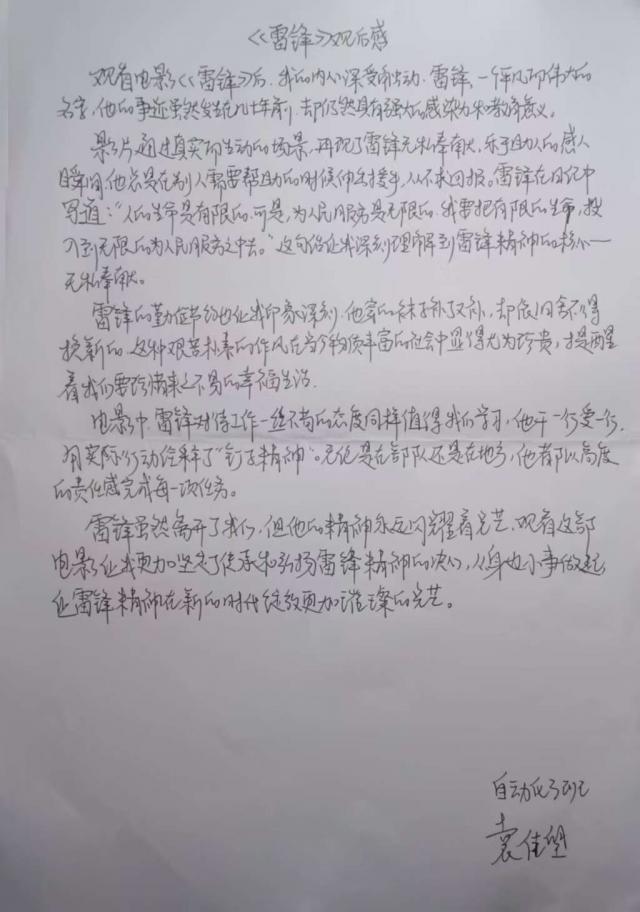 《雷锋》观后感
观看电影《雷锋》后,我的内心深受触动。雷锋,一个平凡而伟大的
名字,他的事迹虽然发生在几十年前,却仍然具有强大的感染力和教育意义。
影片通过真实而生动的场景,再现了雷锋无私奉献,乐于助人的感人
瞬间,他总是在别人需要帮助的时候伸出援手,从不求回报。雷锋在日记中
写道:“人的生命是有限的,可是,为人民服务是无限的,我要把有限的生命,投
入到无限的为人民服务之中去。”这句话让我深刻理解到雷锋精神的核心——
无私奉献。
雷锋的勤俭节约也让我印象深刻,他穿的袜子补了又补,却依旧舍不得
换新的,这种艰苦朴素的作风在当今物质丰富的社会中显得尤为珍贵,提醒
着我们要珍惜来之不易的幸福生活。
电影中,雷锋对待工作一丝不苟的态度同样值得我们学习,他干一行爱一行,
用实际行动诠释了“钉子精神”。无论是在部队还是在地方,他都以高度
的责任感完成每一项任务。
雷锋虽然离开了我们,但他的精神永远闪耀着光芒,观看这部
电影让我更加坚定了传承和弘扬雷锋精神的决心,从身边小事做起,
让雷锋精神在新的时代绽放更加璀璨的光芒。
自动化班
袁佳